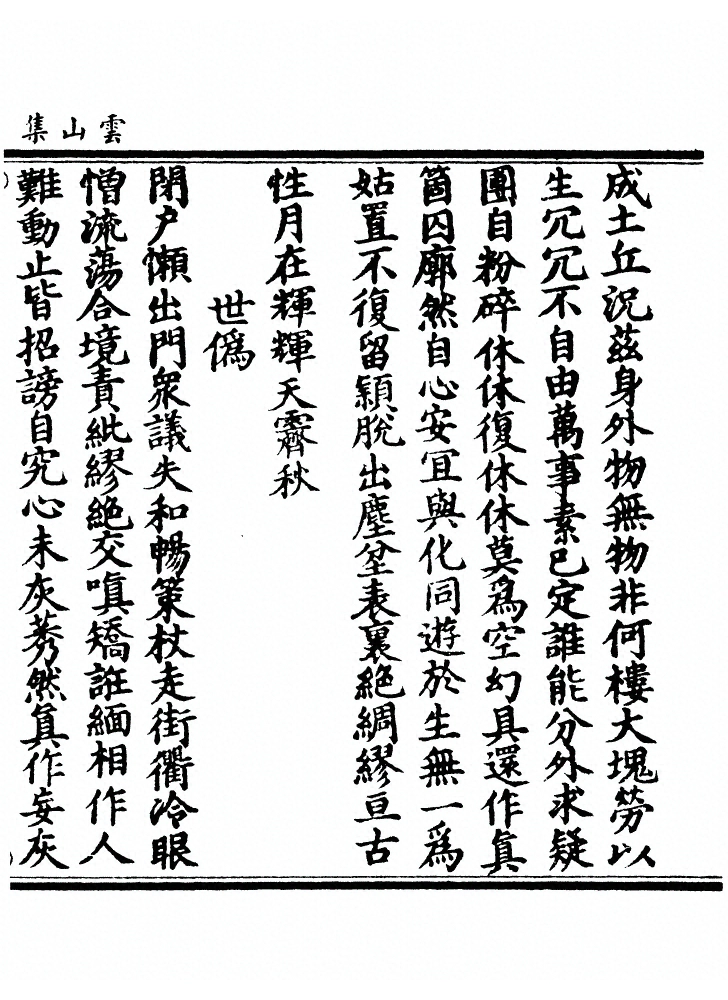 雲山集
成土丘況茲身外物無物非何樓大塊勞以
生冗冗不自由萬事素已定誰能分外求疑
團自粉碎休休復休休莫為空幻具還作眞
箇囚廓然自心安宜與化同遊於生無一為
姑置不復留穎脫出塵坌表裏絶綢繆亘古
性月在輝輝天霽秋
世僞
閉戶懶出門衆議失和暢策杖走街衢冷眼
憎流蕩合境責紕繆絶交嗔矯誑緬相作人
難動止皆招謗自究心未灰莠然眞作妄灰